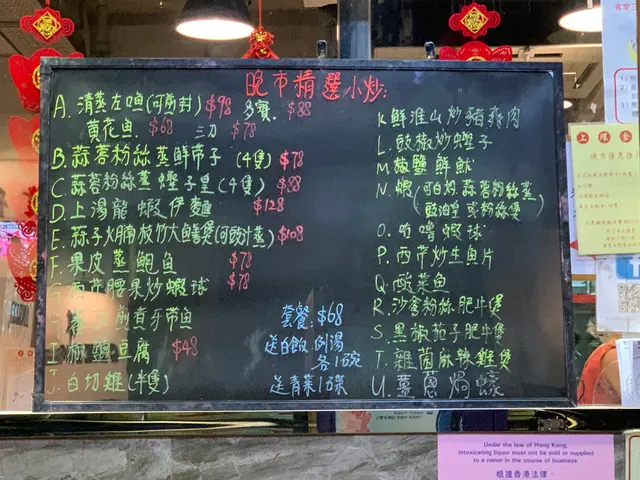 晚市精選小炒:
A. 清蒸左口魚(可兩封) $98 多寶. $88
黃花魚. $68 三刀 $78
B. 蒜蓉粉絲蒸鮮帶子 (4隻) $78
C 蒜蓉粉絲蒸蟶子皇(4隻) $88
D. 上湯龍蝦伊麵 $128
E. 蒜子火腩枝竹大鱔煲(可豉汁蒸) $108
F. 果皮蒸鮑魚 $78
西芹腰果炒蝦球 $78
煎黃牙帶魚
I. 椒鹽豆腐 $48
J. 白切雞(半隻)
套餐: $68
送白飯, 例湯
各1碗
送青菜1碟
K 鮮淮山炒豬爽肉
L. 豉椒炒蟶子
M 椒鹽鮮魷
N. 蝦(可白灼, 蒜蓉粉絲蒸
豉油皇 或粉絲煲)
O. 咕嚕蝦球
P. 西芹炒生魚片
Q 酸菜魚
R. 沙爹粉絲肥牛煲
S. 黑椒茄子肥牛煲
T. 雜菌麻辣雞煲
U. 薑蔥焗蠔
Under the law of Hong Kong,
intoxicating liquor must not be sold or supplied
to a minor in the course of business.
根據香港法律，